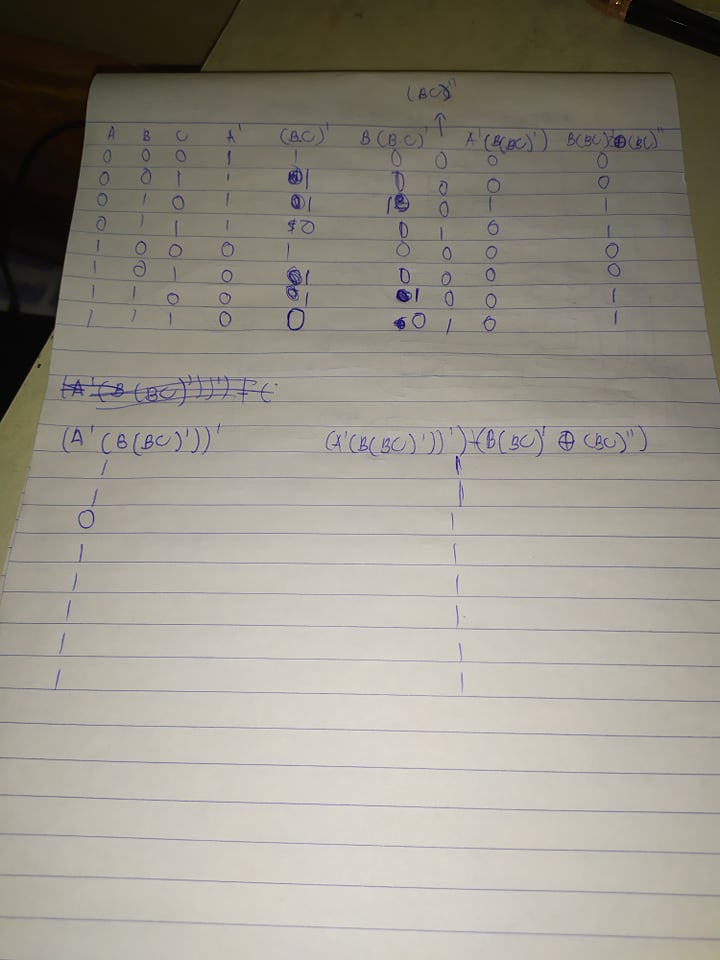 (BC)''
↑
A B C A' (BC)' B(BC)' A'(B(BC)') B(BC)'⊕(BC)''
0 0 0 1 1 0 0 0 0
0 0 1 1 1 0 0 0 0
0 1 0 1 1 1 0 1 1
0 1 1 1 0 0 1 0 1
1 0 0 0 1 0 0 0 0
1 0 1 0 1 0 0 0 0
1 1 0 0 1 1 0 0 1
1 1 1 0 0 0 1 0 1
(A'(B(BC)'))') + (
(A'(B(BC)'))' (A'(B(BC)'))')+(B(BC)' ⊕ (BC)'')
1 1
1 1
0 1
1 1
1 1
1 1
1 1
1 1